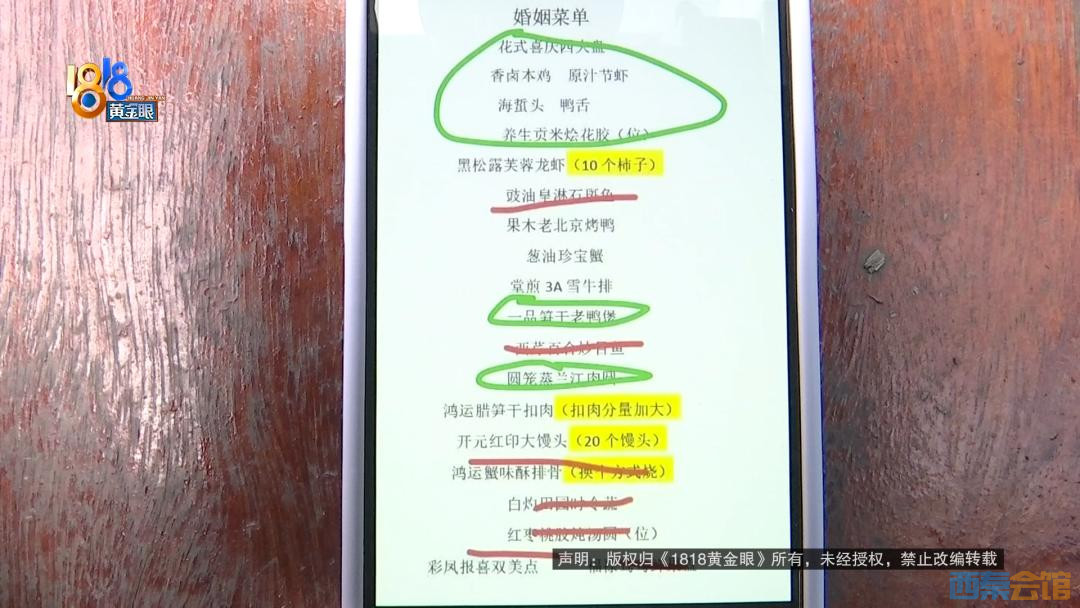 婚姻菜单
花式喜庆四大盘
香卤本鸡 原汁节虾
海蜇头 鸭舌
养生贡米烩花胶（位）
黑松露芙蓉龙虾（10个柿子）
豉油皇淋石斑鱼
果木老北京烤鸭
葱油珍宝蟹
堂煎3A雪牛排
一品笋干老鸭煲
西芹百合炒
圆笼蒸兰江肉圆
鸿运腊笋干扣肉（扣肉分量加大）
开元红印大馒头（20个馒头）
鸿运蟹味酥排骨（换个方式烧）
白灼田园时令蔬
红枣桃胶炖汤圆（位）
彩凤报喜双美点
1818
黄金眼
声明：版权归《1818黄金眼》所有，未经授权，禁止改编转载
西集会馆